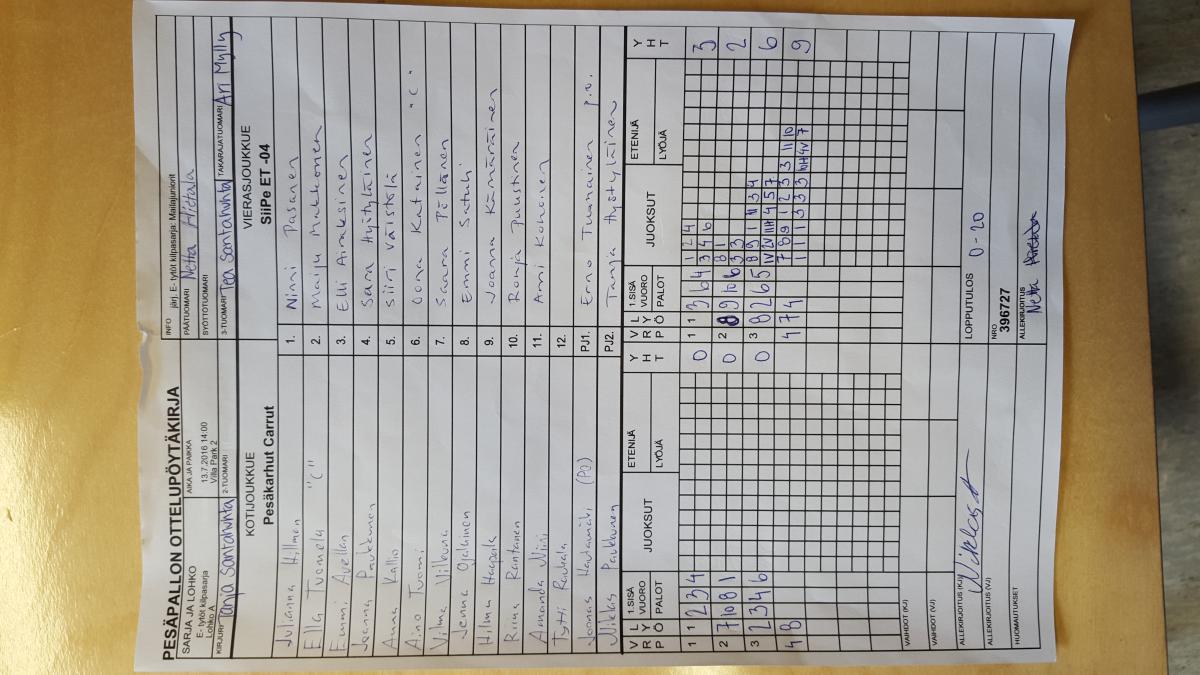 PESÄPALLON OTTELUPÖYTÄKIRJA
SARJA JA LOHKO
E- tytöt kilpasarja
Lohko A
AIKA JA PAIKKA
13.7.2016 14:00
Villa Park 2
INFO järj. E- tytöt kilpasarja: Mailajuniorit
PÄÄTUOMARI Netta Hietala
SYÖTTÖTUOMARI
KIRJURI Tanja Santaluhta 2-TUOMARI
3-TUOMARI Tea Santaluhta TAKARAJATUOMARI Ari Mylly
KOTIJOUKKUE
Pesäkarhut Carrut
VIERASJOUKKUE
SiiPe ET -04
Julianna Hillman 1. Ninni Pasanen
Ella Tuomela "C" 2. Maiju Mukkonen
Emmi Avellan 3. Elli Airaksinen
Joanna Paukkunen 4. Sara Hyötyläinen
Anna Kallio 5. Siiri Väistölä
Aino Tuomi 6. Oona Katainen "C"
Vilma 7. Saara Pöllänen
Jenna 8. Emmi
Hilma 9. Joanna Kämäräinen
Riina Rantanen 10. Ronja Puustinen
Amanda 11. Anni Kohonen
Tytti 12.
Joonas (PJ) PJ1. Erno p.v.
Niklas Paukkunen PJ2. Tanja Hyötyläinen
V R L Y Ö P 1.SISÄ VUORO PALOT JUOKSUT ETENIJÄ LYÖJÄ Y H T V R L Y Ö P 1.SISÄ VUORO PALOT JUOKSUT ETENIJÄ LYÖJÄ Y H T
1 1 2 3 4 0 1 1 3 6 4 1 2 4 3
3 4 6
2 7 10 8 1 0 2 8 9 10 6 8 1 2
3 3
3 2 3 4 6 0 3 8 2 6 5 8 9 1 11 3 4 6
4 8 4 7 4 7 8 9 1 2 3 3 11 10 9
VAIHDOT (KJ)
VAIHDOT (VJ)
ALLEKIRJOITUS (KJ) Niklas
ALLEKIRJOITUS (VJ)
HUOMAUTUKSET
LOPPUTULOS 0-20
NRO
396727
ALLEKIRJOITUS
Netta Hietala